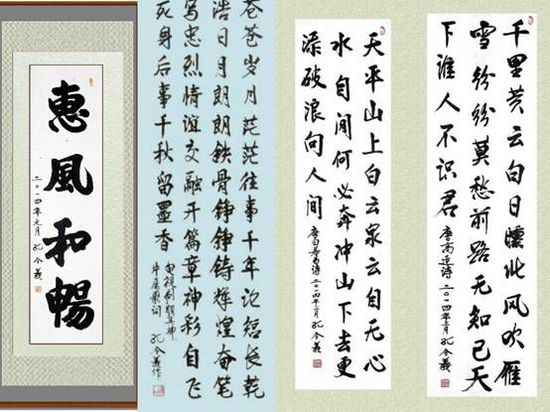 惠風和暢
二〇一四年元月 孔令義
苍苍岁月茫茫往事千年论短长乾
浩日月朗朗铁骨铮铮铸辉煌奋笔
写忠烈情谊交融开篇章神彩自飞
死身后事千秋留墨香
电视剧
片尾歌词 孔令義作
天平山上白云泉云自无心
水自闲何必奔冲山下去更
添破浪向人间
唐白居易诗 二〇一四年二月 孔令義
千里黄云白日曛北风吹雁
雪纷纷莫愁前路无知己天
下谁人不识君
唐高适诗 二〇一四年二月 孔令義